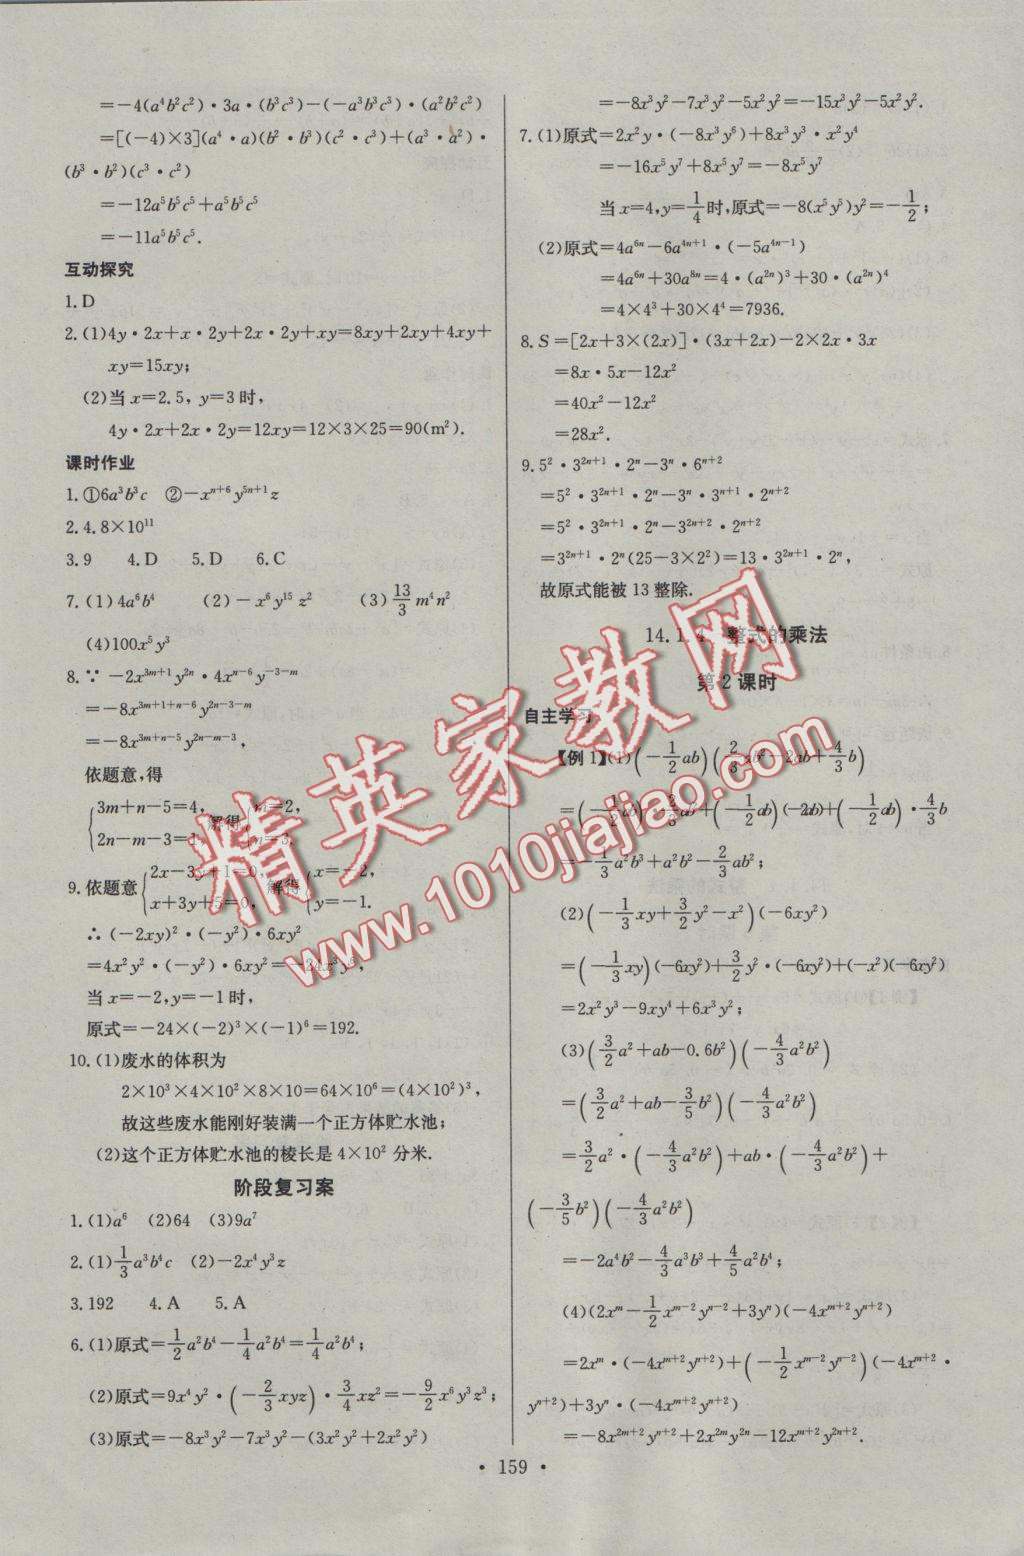 =-4(a⁴b²c²)·3a·(b³c³)-(-a³b³c³)·(a²b²c²)
=[(-4)×3](a⁴·a)(b²·b³)(c²·c³)+(a³·a²)·
(b³·b²)(c³·c²)
=-12a⁵b⁵c⁵+a⁵b⁵c⁵
=-11a⁵b⁵c⁵.
互动探究
1.D
2.(1)4y·2x+x·2y+2x·2y+xy=8xy+2xy+4xy+
xy=15xy;
(2)当x=2.5,y=3时,
4y·2x+2x·2y=12xy=12×3×25=90(m²).
课时作业
1.①6a³b³c ②-xⁿ⁺⁶y⁵ⁿ⁺¹z
2.4.8×10¹¹
3.9 4.D 5.D 6.C
7.(1)4a⁶b⁴ (2)-x⁶y¹⁵z² (3)13/3 m⁴n²
(4)100x⁵y³
8.∵-2x³ᵐ⁺¹y²ⁿ·4xⁿ⁻⁶y⁻³⁻ᵐ
=-8x³ᵐ⁺¹⁺ⁿ⁻⁶y²ⁿ⁻³⁻ᵐ
=-8x³ᵐ⁺ⁿ⁻⁵y²ⁿ⁻ᵐ⁻³,
依题意,得
{3m+n-5=4, 2n-m-3=1, 解得 {m=2, n=3.
9.依题意{2x-3y+1=0, x+3y+5=0, 解得{x=-2, y=-1.
∴(-2xy)²·(-y²)·6xy²
=4x²y²·(-y²)·6xy²=-24x³y⁶,
当x=-2,y=-1时,
原式=-24×(-2)³×(-1)⁶=192.
10.(1)废水的体积为
2×10³×4×10²×8×10=64×10⁶=(4×10²)³,
故这些废水能刚好装满一个正方体贮水池;
(2)这个正方体贮水池的棱长是4×10²分米.
阶段复习案
1.(1)a⁶ (2)64 (3)9a⁷
2.(1)1/3 a³b⁴c (2)-2x⁴y³z
3.192 4.A 5.A
6.(1)原式=1/2 a²b⁴-1/4 a²b⁴=1/4 a²b⁴;
(2)原式=9x⁴y²·(-2/3 xyz)·3/4 xz²=-9/2 x⁶y³z³;
(3)原式=-8x³y²-7x³y²-(3x²y²+2x²y²)
=-8x³y²-7x³y²-5x²y²=-15x³y²-5x²y².
7.(1)原式=2x²y·(-8x³y⁶)+8x³y³·x²y⁴
=-16x⁵y⁷+8x⁵y⁷=-8x⁵y⁷
当x=4,y=1/4时,原式=-8(x⁵y⁵)y²=-1/2;
(2)原式=4a⁶ⁿ-6a⁴ⁿ⁺¹·(-5a⁴ⁿ⁻¹)
=4a⁶ⁿ+30a⁸ⁿ=4·(a²ⁿ)³+30·(a²ⁿ)⁴
=4×4³+30×4⁴=7936.
8.S=[2x+3×(2x)]·(3x+2x)-2×2x·3x
=8x·5x-12x²
=40x²-12x²
=28x².
9.5²·3²ⁿ⁺¹·2ⁿ-3ⁿ·6ⁿ⁺²
=5²·3²ⁿ⁺¹·2ⁿ-3ⁿ·3ⁿ⁺¹·2ⁿ⁺²
=5²·3²ⁿ⁺¹·2ⁿ-3²ⁿ⁺²·2ⁿ⁺²
=3²ⁿ⁺¹·2ⁿ(25-3×2²)=13·3²ⁿ⁺¹·2ⁿ,
故原式能被13整除.
14.1.4 整式的乘法
第2课时
自主学习
【例1】(1)(-1/2 ab)(2/3 ab²-2ab+4/3 b)
=(-1/2 ab)·2/3 ab²+(-1/2 ab)(-2ab)+(-1/2 ab)·4/3 b
=-1/3 a²b³+a²b²-2/3 ab²;
(2)(-1/3 xy+3/2 y²-x²)(-6xy²)
=(-1/3 xy)(-6xy²)+3/2 y²·(-6xy²)+(-x²)(-6xy²)
=2x²y³-9xy⁴+6x³y²;
(3)(3/2 a²+ab-0.6b²)(-4/3 a²b²)
=(3/2 a²+ab-3/5 b²)(-4/3 a²b²)
=3/2 a²·(-4/3 a²b²)+ab·(-4/3 a²b²)+
(-3/5 b²)(-4/3 a²b²)
=-2a⁴b²-4/3 a³b³+4/5 a²b⁴;
(4)(2xᵐ-1/2 xᵐ⁻²yⁿ⁻²+3yⁿ)(-4xᵐ⁺²yⁿ⁺²)
=2xᵐ·(-4xᵐ⁺²yⁿ⁺²)+(-1/2 xᵐ⁻²yⁿ⁻²)(-4xᵐ⁺²·
yⁿ⁺²)+3yⁿ·(-4xᵐ⁺²yⁿ⁺²)
=-8x²ᵐ⁺²yⁿ⁺²+2x²ᵐy²ⁿ-12xᵐ⁺²y²ⁿ⁺².
·159·
精英家教网
www.1010jiajiao.com